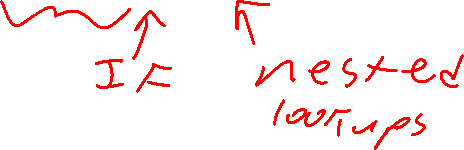 IF nested
lookups